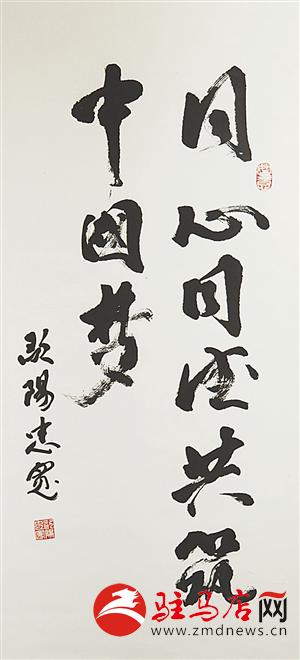 同心同德共筑
中国梦
欧陽
驻马店网
www.zmdnews.cn